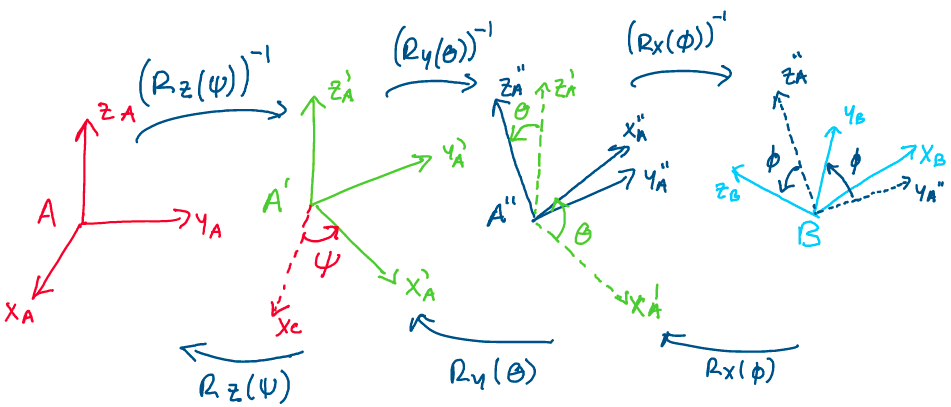 (Rz(ψ))⁻¹
(Ry(θ))⁻¹
(Rx(ϕ))⁻¹
zA
A
yA
xA
z'A
A'
y'A
x'A
xc
ψ
z''A
z'A
θ
x''A
y''A
A''
θ
x'A
z''A
yB
xB
ϕ
ϕ
zB
yA''
B
Rz(ψ)
Ry(θ)
Rx(ϕ)